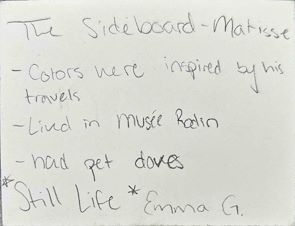 The Sideboard - Matisse
- Colors were inspired by his
travels
- Lived in musée Rodin
- had pet doves
*Still Life* Emma G.